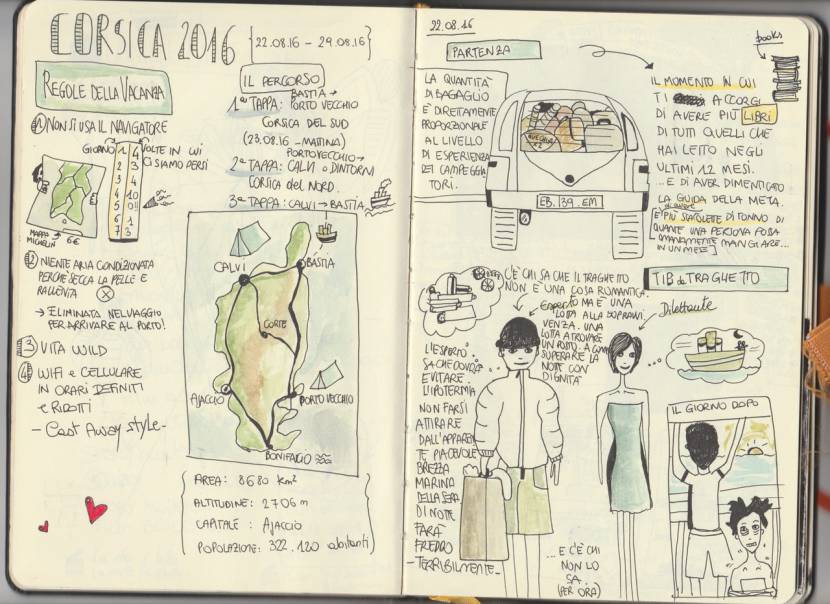 CORSICA 2016
{22.08.16 - 29.08.16}
REGOLE DELLA VACANZA
1 NON SI USA IL NAVIGATORE
GIORNO
VOLTE IN CUI
CI SIAMO PERSI
1 4
2 3
3 3
4 4
5 10
6 1
7 3
MAPPA
MICHELIN
6€
2 NIENTE ARIA CONDIZIONATA
PERCHÈ SECCA LA PELLE E
RALLENTA
→ ELIMINATA NEL VIAGGIO
PER ARRIVARE AL PORTO!
3 VITA WILD
4 WIFI e CELLULARE
IN ORARI DEFINITI
e RIDOTTI
- Cast Away style -
IL PERCORSO
1ª TAPPA: BASTIA →
PORTO VECCHIO
CORSICA DEL SUD
(23.08.16 - MATTINA)
PORTOVECCHIO →
2ª TAPPA: CALVI o DINTORNI
CORSICA del NORD.
3ª TAPPA: CALVI → BASTIA
CALVI
BASTIA
CORTE
AJACCIO
PORTO VECCHIO
BONIFACIO
AREA: 8680 Km²
ALTITUDINE: 2706 m
CAPITALE: AJACCIO
POPOLAZIONE: 322.120 abitanti
22.08.16
PARTENZA
LA QUANTITÀ
DI BAGAGLIO
È DIRETTAMENTE
PROPORZIONALE
AL LIVELLO
DI ESPERIENZA
DEI CAMPEGGIA
TORI.
EB.139.EM
books
IL MOMENTO IN CUI
TI ACCORGI
DI AVERE PIÙ LIBRI
DI TUTTI QUELLI CHE
HAI LETTO NEGLI
ULTIMI 12 MESI.
... E DI AVER DIMENTICATO
LA GUIDA DELLA META.
di avere
E PIÙ SCATOLETTE DI TONNO DI
QUANTE UNA PERSONA POSSA
UMANAMENTE MANGIARE...
IN UN MESE
TIB da TRAGHETTO
C'È CHI SA CHE IL TRAGHETTO
NON È UNA COSA ROMANTICA.
MA È UNA
LOTTA ALLA SOPRAVVI
VENZA. UNA
LOTTA A TROVARE
UN POSTO. A COME
SUPERARE LA
NOTTE CON
DIGNITÀ
Esperto
Dilettante
L'ESPERTO
SA CHE DOVRÀ
EVITARE
L'IPOTERMIA
NON FARSI
ATTIRARE
DALL'APPAREN
TE PIACEVOLE
BREZZA
MARINA
DELLA SERA
DI NOTTE
FARÀ
FREDDO
- TERRIBILMENTE -
... E C'È CHI
NON LO
SA...
(PER ORA)
IL GIORNO DOPO